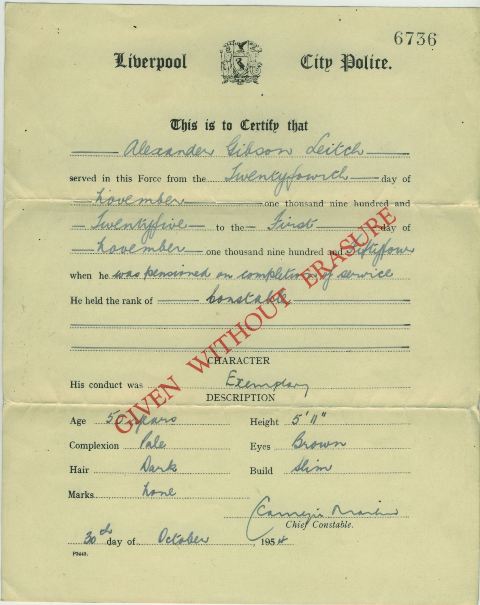 6736
Liverpool City Police.
This is to Certify that
Alexander Gibson Leitch
served in this Force from the Twentyfourth day of
November one thousand nine hundred and
Twentyfive to the First day of
November one thousand nine hundred and Fiftyfour
when he was pensioned on completion of service
He held the rank of Constable
GIVEN WITHOUT ERASURE
CHARACTER
His conduct was Exemplary
DESCRIPTION
Age 50 years Height 5' 11"
Complexion Pale Eyes Brown
Hair Dark Build Slim
Marks None
Chief Constable.
30th day of October, 1954